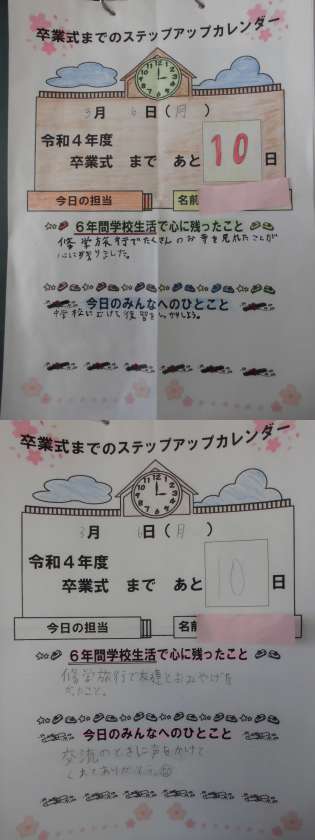 卒業式までのステップアップカレンダー
12
1
2
3
4
5
6
7
8
9
10
11
3月 6日(月)
令和4年度
卒業式 まで あと 10 日
今日の担当
名前
6年間学校生活で心に残ったこと
修学旅行でたくさんのお寺を見れたことが
心に残りました。
今日のみんなへのひとこと
中学校にむけて復習をしっかりしよう。
卒業式までのステップアップカレンダー
12
1
2
3
4
5
6
7
8
9
10
11
3月 6日(月)
令和4年度
卒業式 まで あと 10 日
今日の担当
名前
6年間学校生活で心に残ったこと
修学旅行で友達とおみやげを
かったこと。
今日のみんなへのひとこと
交流のときに声をかけて
くれてありがとう。